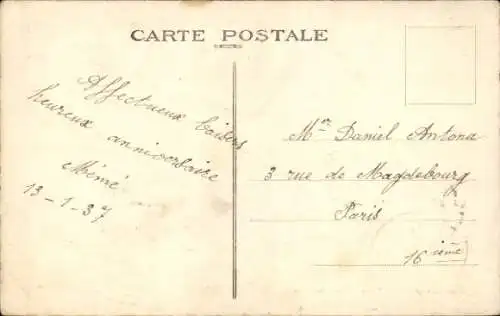 CARTE POSTALE
Affectueux baisers
heureux anniversaire
Mémé
13-1-37
Mer Daniel Antona
3 rue de Magdebourg
Paris
16 ième